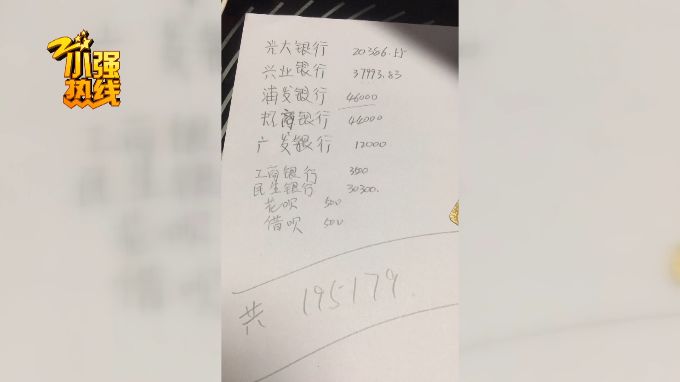 小强
热线
光大银行 20366.55
兴业银行 37993.83
浦发银行 46000
招商银行 44000
广发银行 12000
工商银行 3500
民生银行 30300.
花呗 500
借呗 500
共 195179.